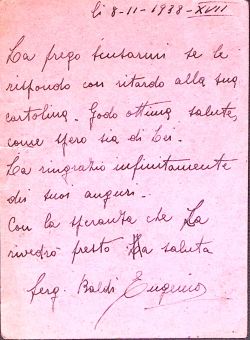 li 8-11-1938-XVII
La prego scusarmi se le
rispondo con ritardo alla sua
cartolina. Godo ottima salute,
come spero sia di Lei.
La ringrazio infinitamente
dei suoi auguri.
Con la speranza che La
rivedrò presto La saluta
Serg. Baldi Eugenio